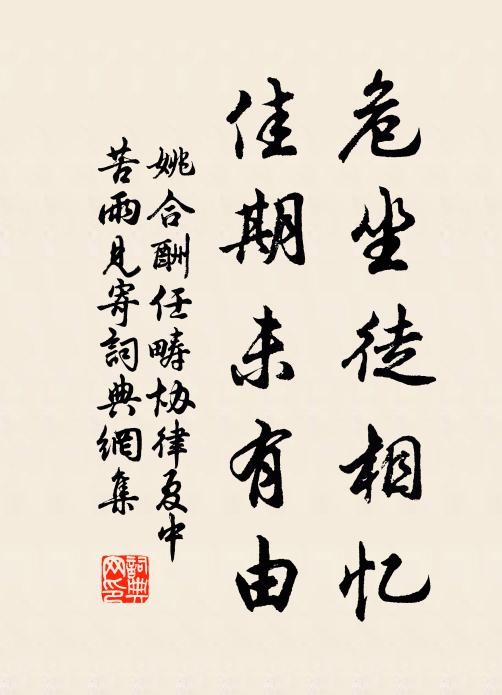 危坐徒相忆
佳期未有由
姚合酬任畴协律夏中
苦雨見寄詞典網集
詞典
网印